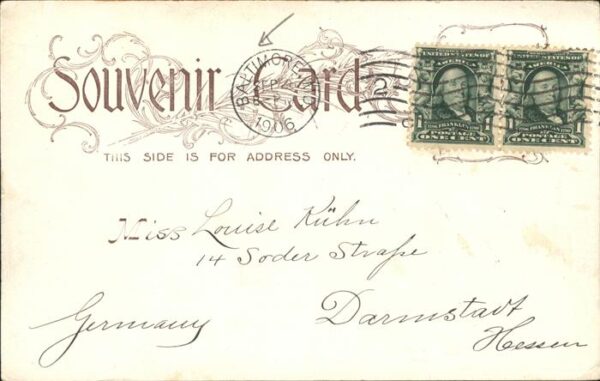 Souvenir Card
BALTIMORE, MD.
SEP
1906
2
UNITED STATES OF AMERICA
FRANKLIN
1 POSTAGE 1
ONE CENT
UNITED STATES OF AMERICA
FRANKLIN
1 POSTAGE 1
ONE CENT
THIS SIDE IS FOR ADDRESS ONLY.
Miss Louise Kühn
14 Soder Straße
Germany
Darmstadt
Hessen